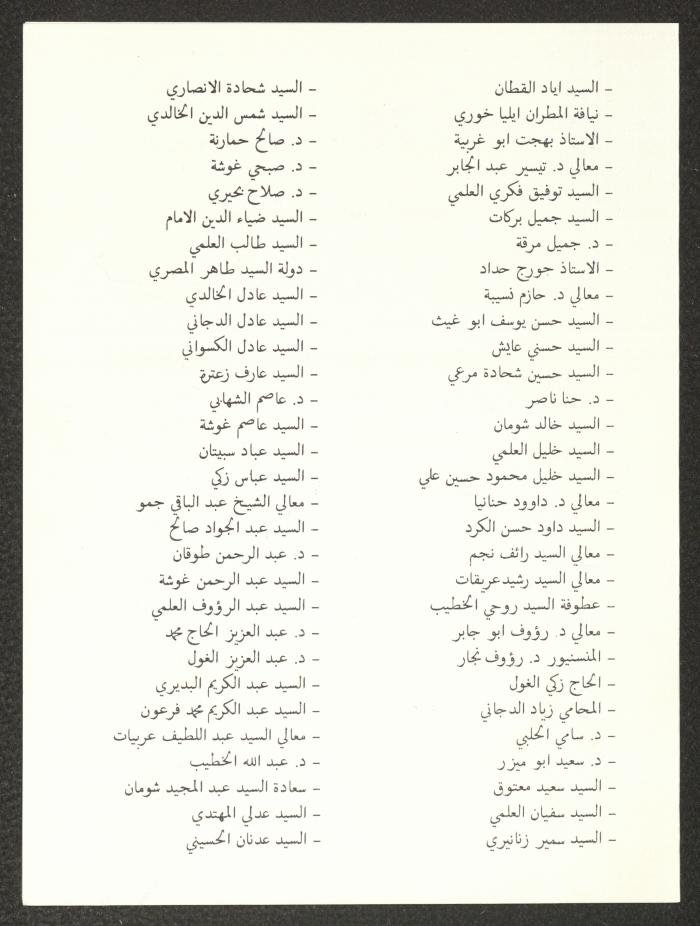 - السيد اياد القطان
- نيافة المطران ايليا خوري
- الاستاذ بهجت ابو غربية
- معالي د. تيسير عبد الجابر
- السيد توفيق فكري العلمي
- السيد جميل بركات
- د. جميل مرقة
- الاستاذ جورج حداد
- معالي د. حازم نسيبة
- السيد حسن يوسف ابو غيث
- السيد حسني عايش
- السيد حسين شحادة مرعي
- د. حنا ناصر
- السيد خالد شومان
- السيد خليل العلمي
- السيد خليل محمود حسين علي
- معالي د. داوود حنانيا
- السيد داود حسن الكرد
- معالي السيد رائف نجم
- معالي السيد رشيد عريقات
- عطوفة السيد روحي الخطيب
- معالي د. رؤوف ابو جابر
- المنسنيور د. رؤوف نجار
- الحاج زكي الغول
- المحامي زياد الدجاني
- د. سامي الحلبي
- د. سعيد ابو ميزر
- السيد سعيد معتوق
- السيد سفيان العلمي
- السيد سمير زنانيري
- السيد شحادة الانصاري
- السيد شمس الدين الخالدي
- د. صالح حمارنة
- د. صبحي غوشة
- د. صلاح بحيري
- السيد ضياء الدين الامام
- السيد طالب العلمي
- دولة السيد طاهر المصري
- السيد عادل الخالدي
- السيد عادل الدجاني
- السيد عادل الكسواني
- السيد عارف زعترة
- د. عاصم الشهابي
- السيد عاصم غوشة
- السيد عباد سبيتان
- السيد عباس زكي
- معالي الشيخ عبد الباقي جمو
- السيد عبد الجواد صالح
- د. عبد الرحمن طوقان
- السيد عبد الرحمن غوشة
- السيد عبد الرؤوف العلمي
- د. عبد العزيز الحاج محمد
- د. عبد العزيز الغول
- السيد عبد الكريم البديري
- السيد عبد الكريم محمد فرعون
- معالي السيد عبد اللطيف عربيات
- د. عبد الله الخطيب
- سعادة السيد عبد المجيد شومان
- السيد عدلي المهتدي
- السيد عدنان الحسيني